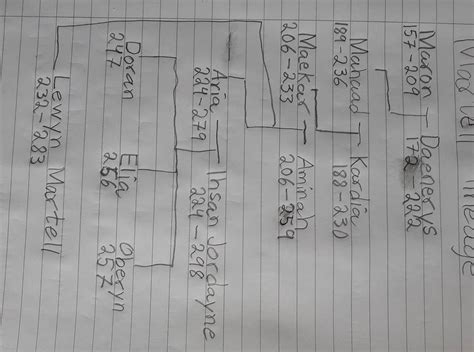 Martell
Maron - Daenerys
157-209 172-222
Mahaad Kardia
189-236 188-230
Maekar - Aminah
206-233 206-259
Aria - Ihsan Jordayne
224-279 224-298
Doran Elia Oberyn
247 256 257
Lewyn Martell
232-283